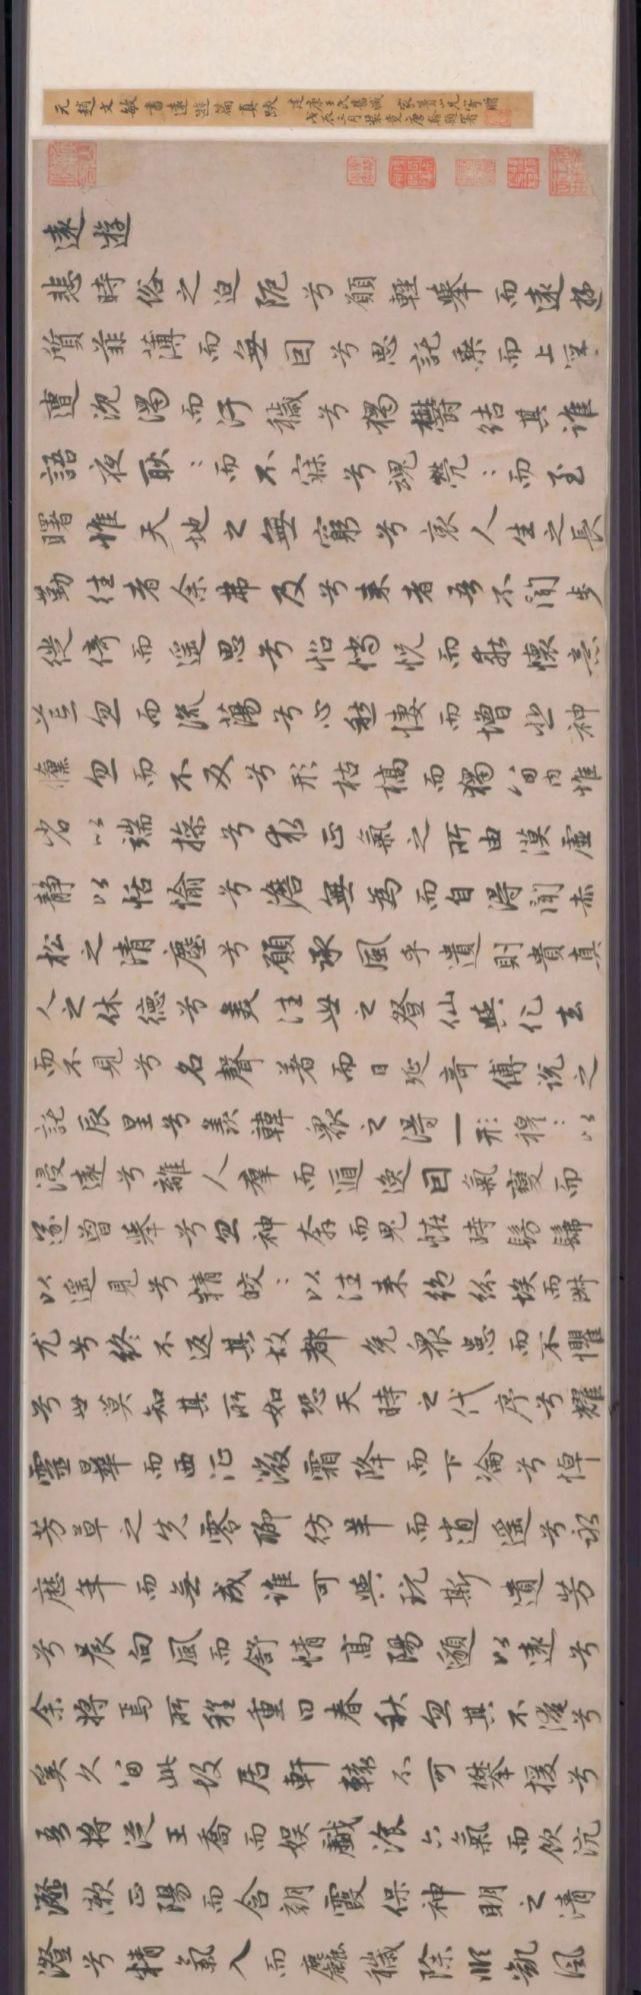 元趙文敏書遠遊篇真蹟
建康王氏舊藏
遠遊
悲時俗之迫阨兮願輕舉而遠遊
質菲薄而無因兮焉託乘而上浮
遭沈濁而汙穢兮獨鬱結其誰
語夜耿:而不寐兮魂煢:而至
曙惟天地之無窮兮哀人生之長
勤往者余弗及兮来者吾不聞步
徙倚而遥思兮怊惝怳而乖懷意
荒忽而流蕩兮心愁悽而增悲神
儵忽而不反兮形枯槁而獨留内惟
省以端操兮求正氣之所由漠虛
静以恬愉兮澹無為而自得聞赤
松之清塵兮願承風乎遺則貴真
人之休德兮美往世之登仙與化去
而不見兮名聲著而日延奇傅說之
託辰星兮羨韓衆之得一形穆:以
浸遠兮離人羣而遁逸因氣變而
遂曾舉兮忽神奔而鬼怪時髣髴
以遥見兮精皎:以往来絶氛埃而淑
尤兮終不返其故都免衆患而不懼
兮世莫知其所如恐天時之代序兮耀
靈曄而西征微霜降而下淪兮悼
芳草之先零聊仿羊而逍遥兮永
歷年而無成誰可與玩斯遺芳
兮晨向風而舒情高陽邈以遠兮
余將焉所程重曰春秋忽其不淹兮
奚久留此故居軒轅不可攀援兮
吾將從王喬而娱戲湌六氣而飲沆
瀣漱正陽而含朝霞保神明之清
澄兮精氣入而麤穢除順凱風